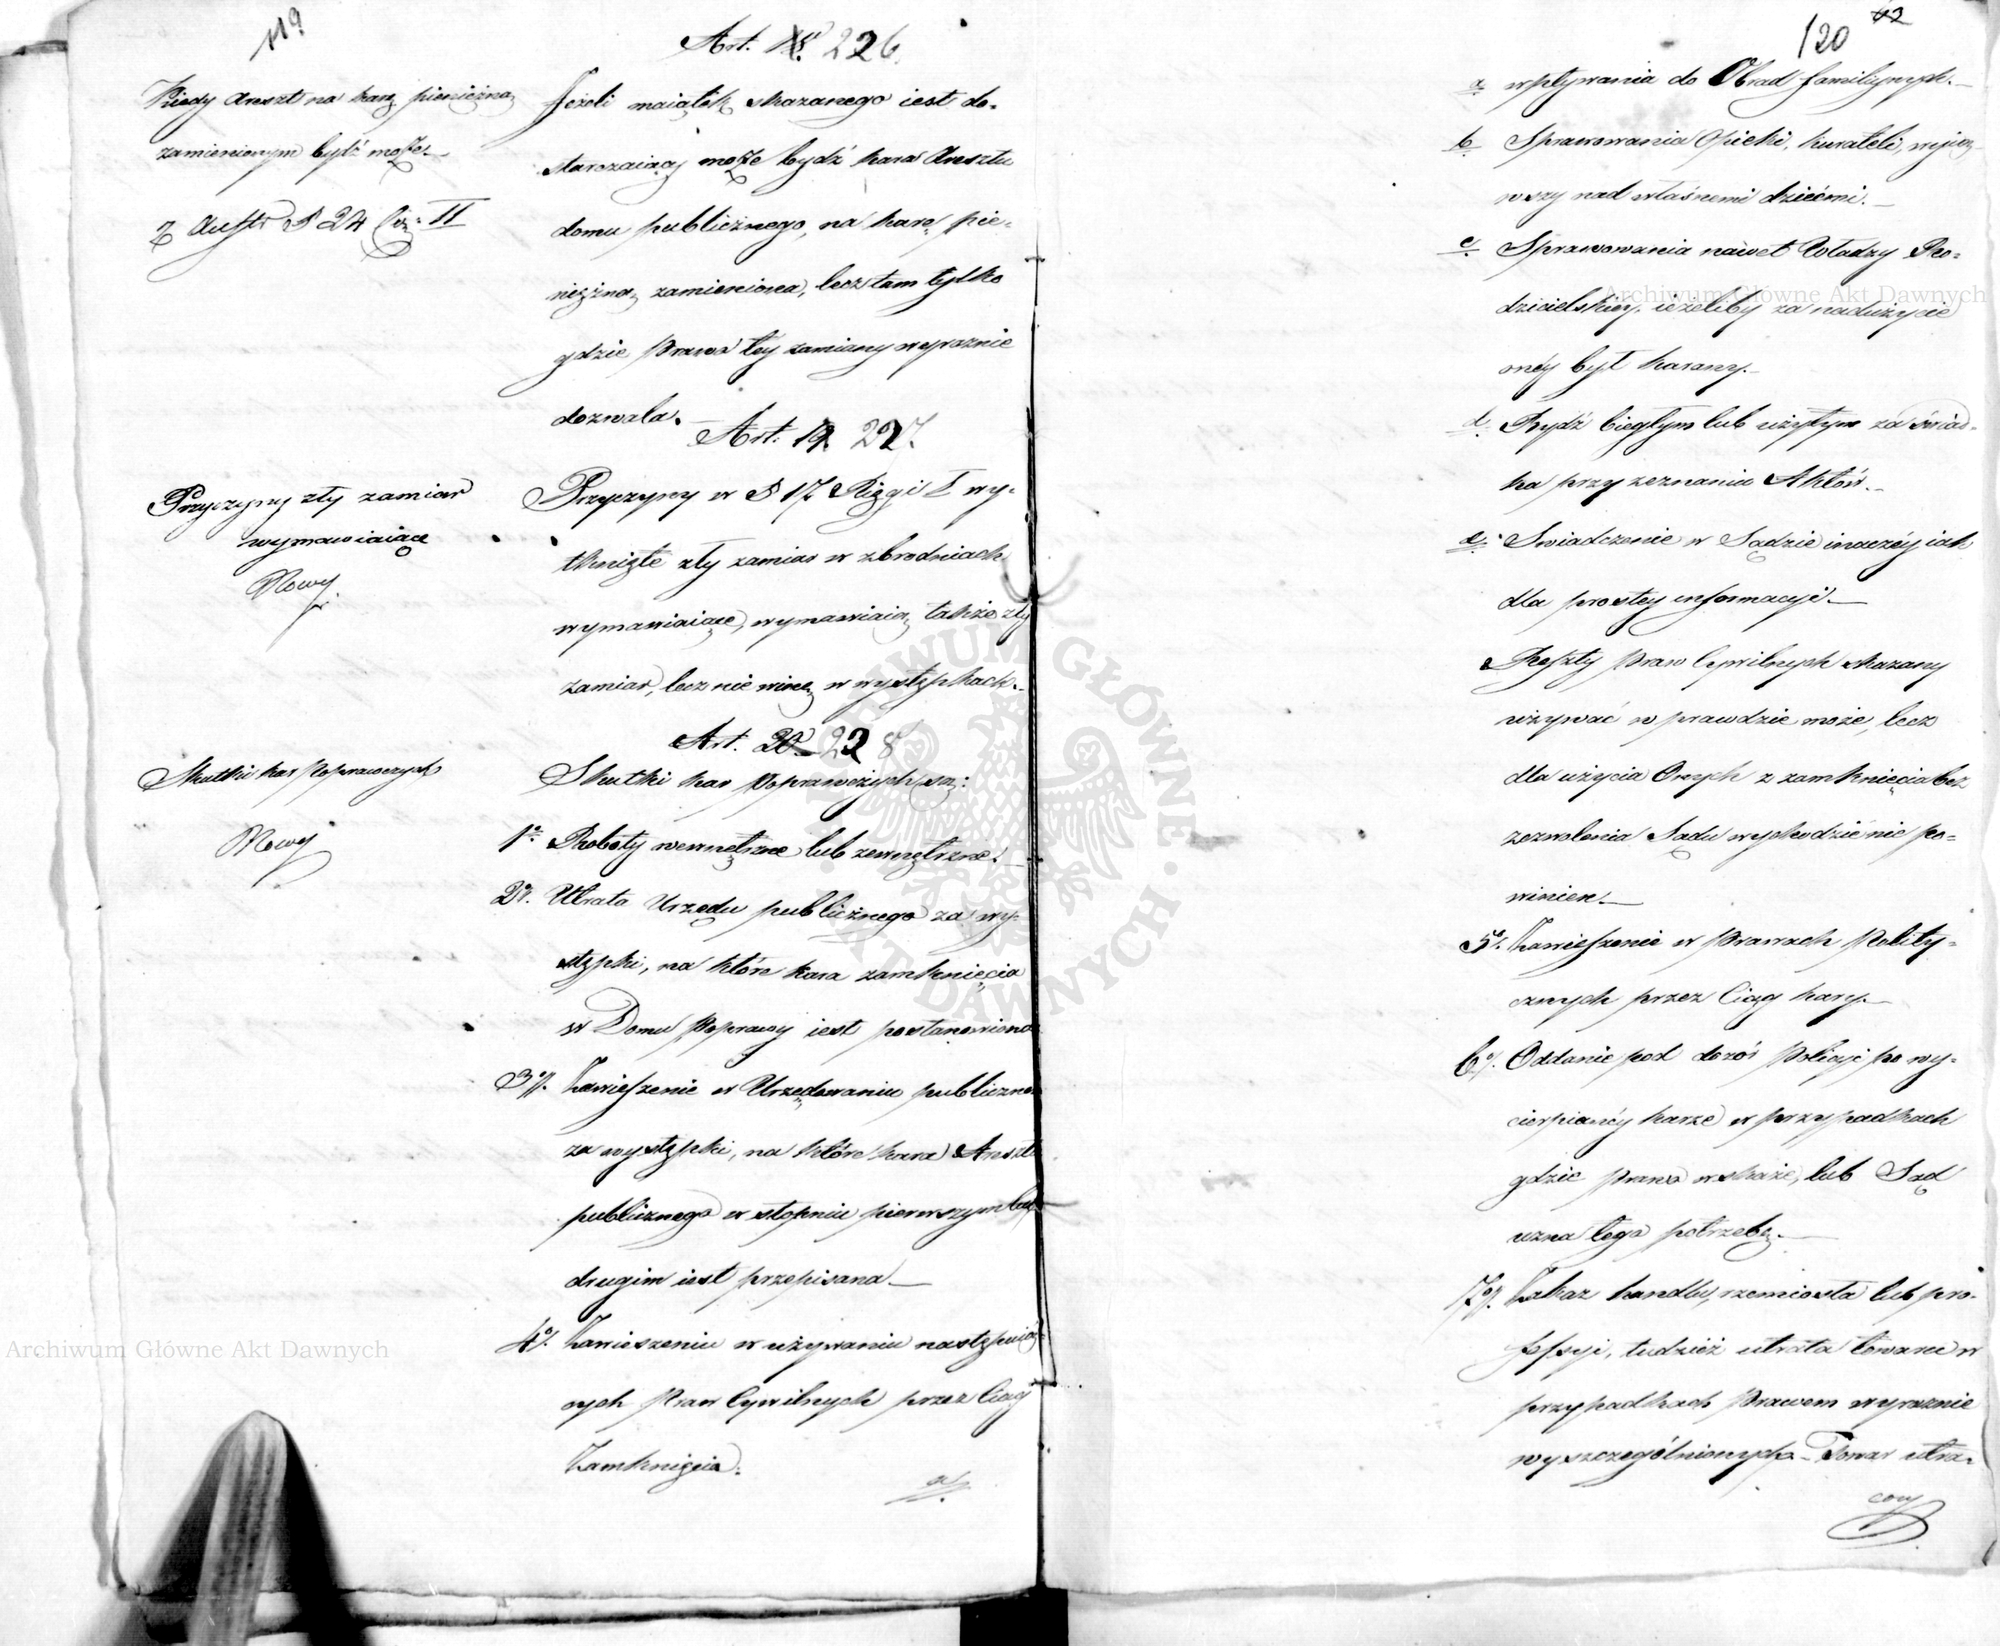 119
Art. 18. 226.
Kiedy Areszt na karę pieniężną
zamienionym bydź może.
z Austr § 24 Cz: II
Jeżeli maiątek skazanego iest do-
starczaiący może bydź kara Aresztu
domu publicznego, na karę pie-
niężną zamieniona, lecz tam tylko
gdzie Prawo tey zamiany wyraznie
dozwala.
Art. 19. 227.
Przyczyny zły zamiar
wymawiaiące
Nowy.
Przyczyny w § 17 Księgi I wy-
tknięte zły zamiar w zbrodniach
wymawiaiące, wymawiaią także zły
zamiar, lecz nie winę w występkach.
Art. 20. 228
Skutki kar Poprawczych
Nowy
Skutki kar Poprawczych są:
1o Roboty wewnętrzne lub zewnętrzne.
2o. Utrata Urzędu publicznego za wy-
stępki, na które kara zamknięcia
w Domu Poprawy iest postanowiona
3o. Zawieszenie w Urzędowaniu publiczne
za występki, na które kara Areszt
publicznego w stopniu pierwszym lub
drugim iest przepisana
4o. Zawieszeniu w używaniu następuią-
cych Praw Cywilnych przez Ciąg
Zamknięcia.
a.
120 62
a. wpływania do Obrad familiynych.
b. Sprawowania Opieki, kurateli, wyią-
wszy nad własnemi dziećmi.
c. Sprawowania nawet Władzy Ro-
dzicielskiey, ieżeliby za nadużycie
onéy był karany.
d. Bydź biegłym lub użytym za świad-
ka przy zeznaniu Aktów.
e. Swiadczenie w Sądzie inaczéy iak
dla prostey informacyi.
Reszty Praw Cywilnych skazany
używać w prawdzie może, lecz
dla użycia Onych z zamknięcia bez
zezwolenia Sądu wychodzić nie po-
winien.
5o. Zawieszenie w Prawach Polity-
cznych przez Ciąg kary.
6o. Oddanie pod dozór Policyi po wy-
cierpianéy karze w przypadkach
gdzie Prawo wskaże, lub Sąd
uzna tego potrzebę.
7o. Zakaz handlu, rzemiosła lub pro-
fessyi, tudzież utrata towaru w
przypadkach Prawem wyraznie
wyszczególnionych. Towar utra-
cony
Archiwum Główne Akt Dawnych
Archiwum Główne Akt Dawnych
ARCHIWUM GŁÓWNE AKT DAWNYCH